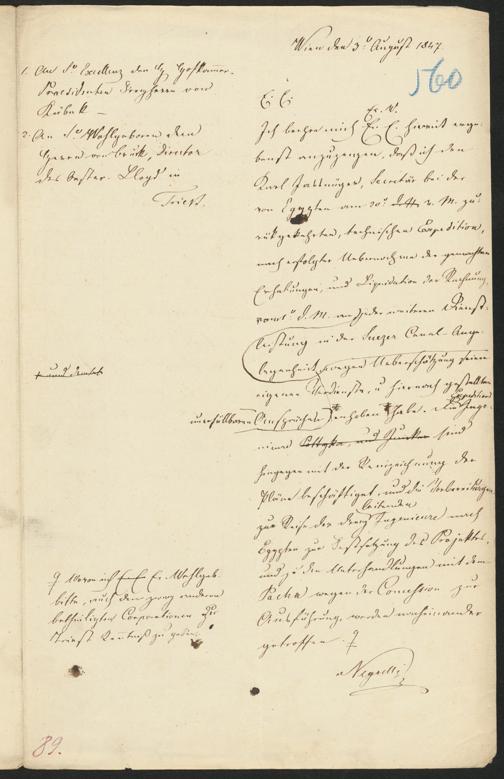 Wien den 3t August 1847.
560
1. An Sr Excellenz den H Hofkammer-
Präsidenten Freyherrn von
Kübek –
2. An Sr Wohlgeboren dem
Herrn von Bruck, Director
des Oester. Lloyd in
Triest.
E. E.
Er. W.
Ich beehre mich Er. E. hiermit erge-
benst anzuzeigen, daß ich den
Karl Jasnüger, Secretär bei der
von Egypten am v. M. zu-
rükgekehrten, technischen Expedition,
nach erfolgter Uebernahme der gemachten
Erhebungen, und Liquidation der Rechnung
d. M. jeder weiteren Dienst-
leistung in der Suezer Canal-Ange-
legenheit, wegen Ueberschätzung seiner
eigenen Verdienste, u hiernach gestellten
unerfüllbaren Ansprüchen enthoben habe. Die Inge-
Expeditions
nieure und sind
hingegen mit der Reinzeichnung der
Pläne beschäftiget, und die Vorbereitungen
zur Reise der drey leitenden Ingenieure nach
Egypten zur Festsetzung des Projektes,
und zu den Unterhandlungen mit dem
Pascha wegen der Concession zur
Ausführung werden nacheinander
getroffen.
Negrelli
Wovon ich Er. Wohlgeb.
bitte, auch den zwey andern
betheiligten Corporationen zu
Triest Kenntniß zu geben.
89.